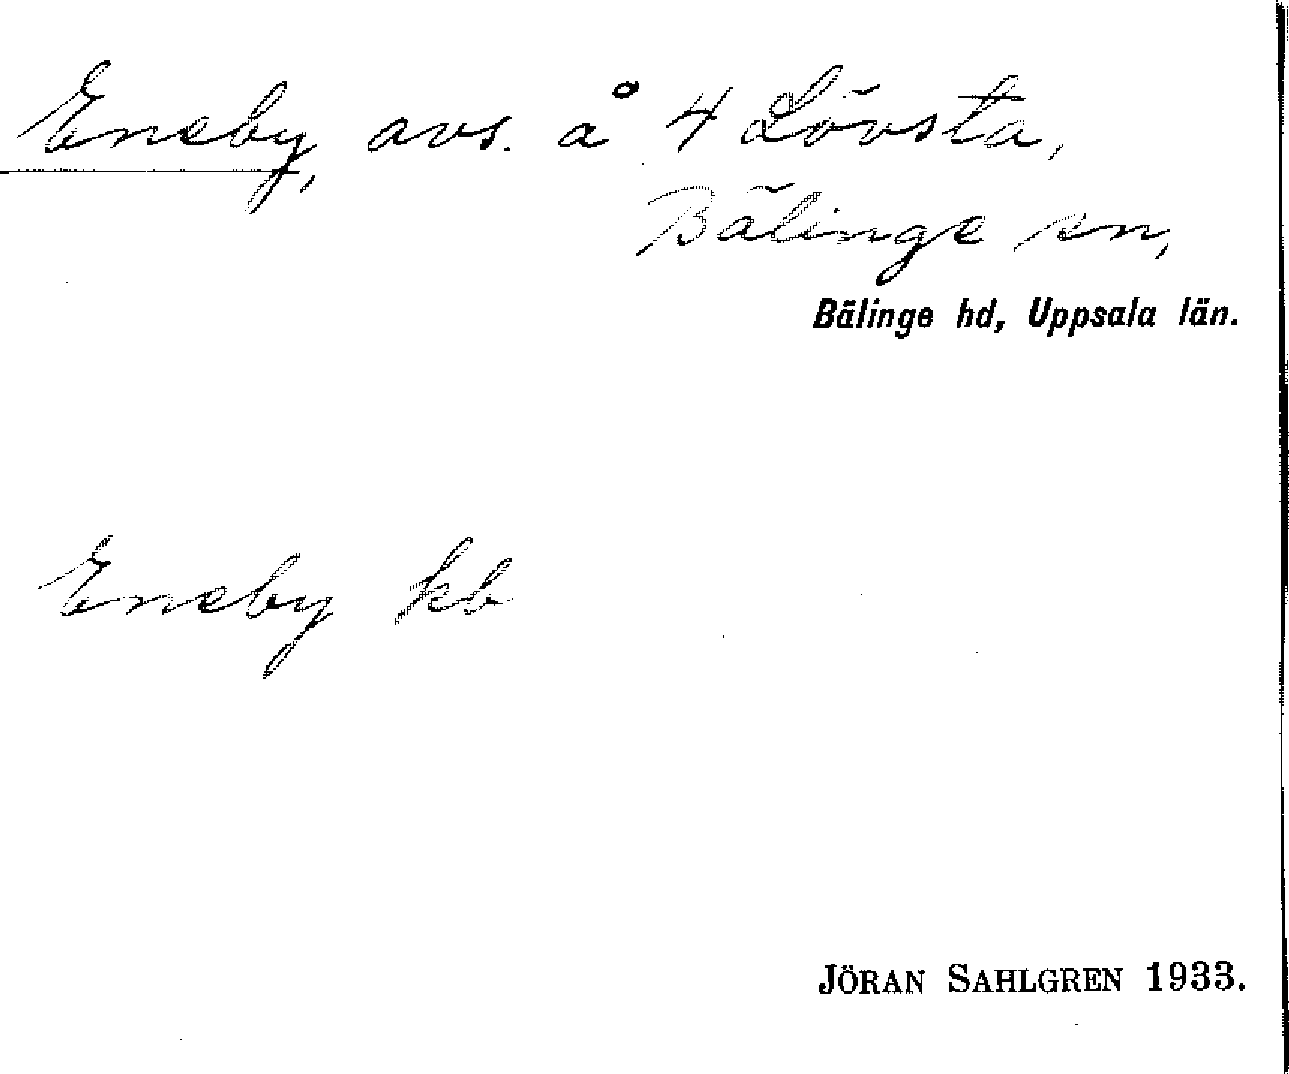 Eneby, avs. å 4 Lövsta,
Bälinge sn,
Bälinge hd, Uppsala län.
Eneby kb
JÖRAN SAHLGREN 1933.